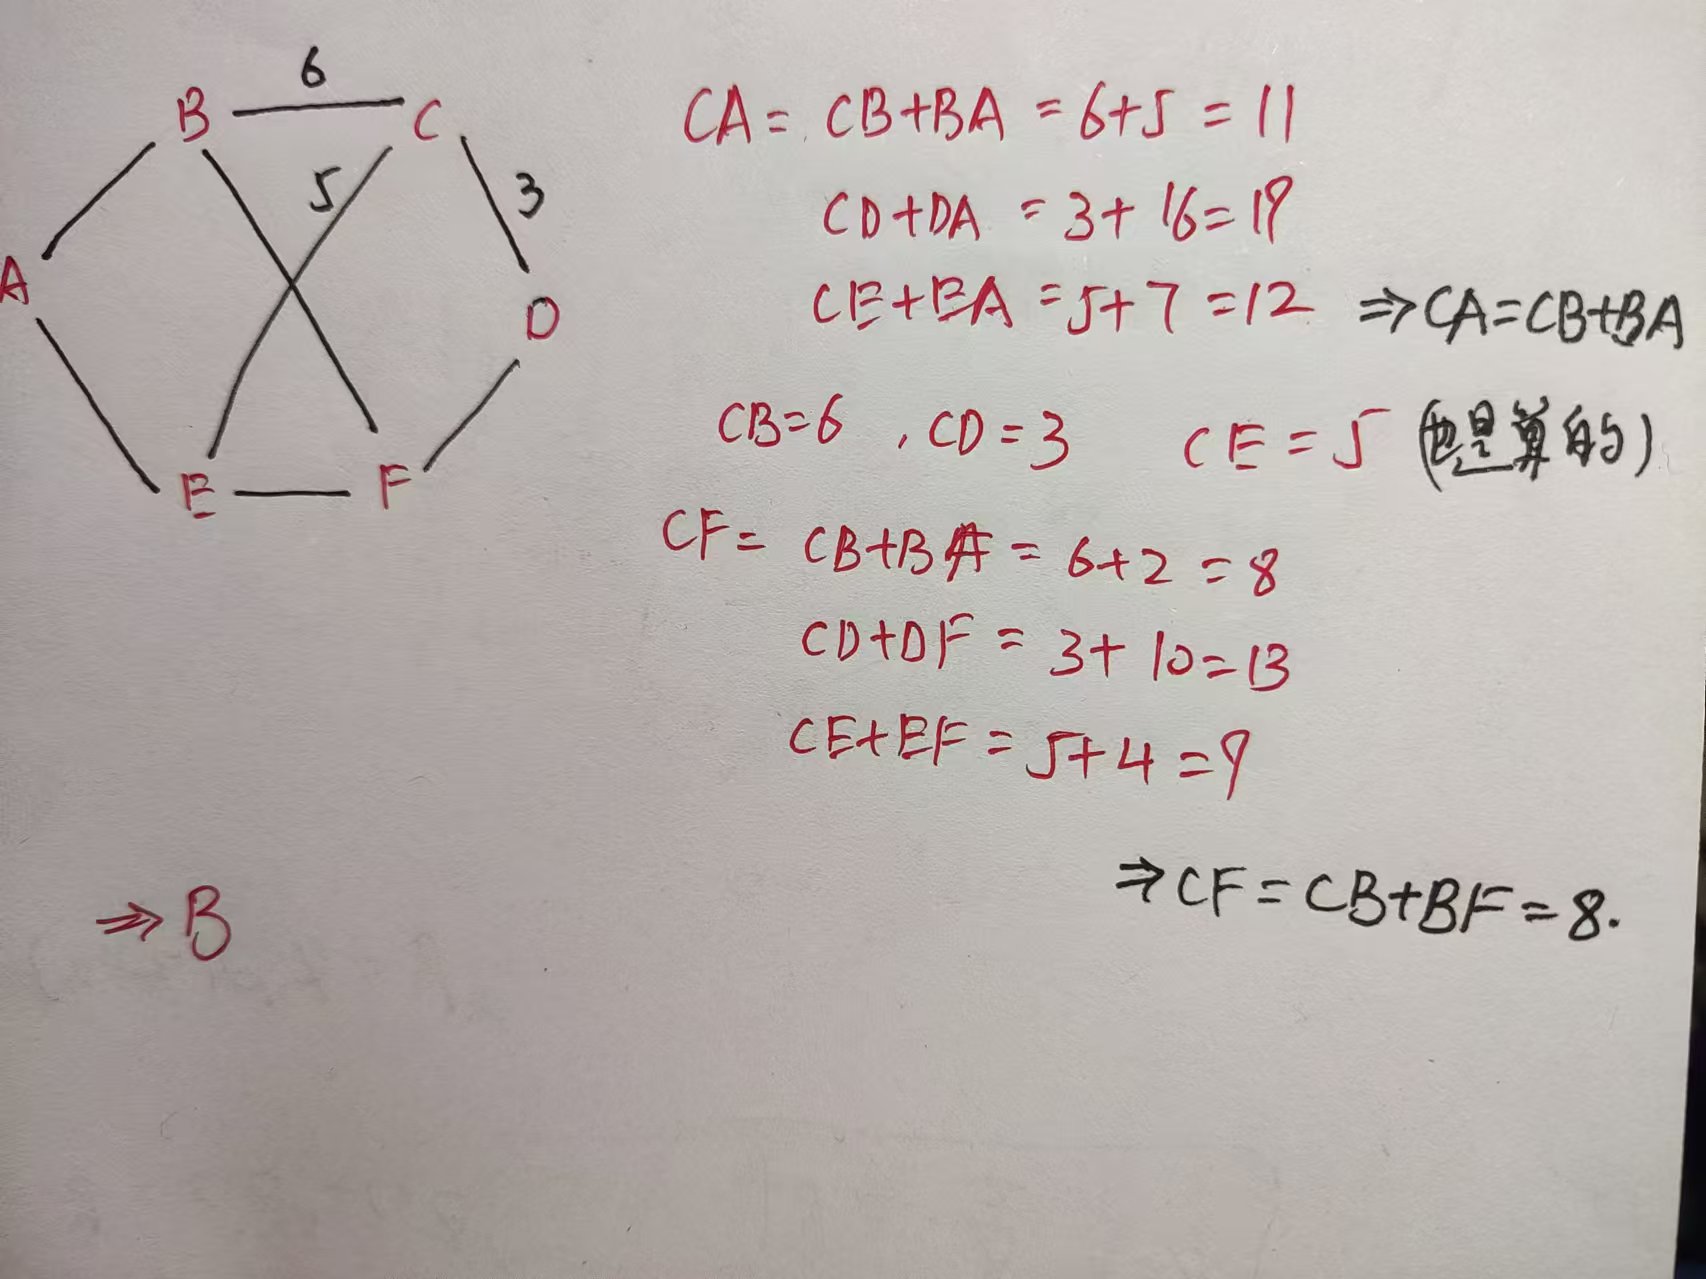 6
B
C
5
3
A
D
E
F
CA = CB+BA = 6+5 = 11
CD+DA = 3+16=19
CE+EA =5+7=12 ⇒CA=CB+BA
CB=6 , CD=3 CE=5 (也是算的)
CF= CB+BA = 6+2 =8
CD+DF = 3+10=13
CE+EF = 5+4=9
⇒CF=CB+BF=8.
⇒ B